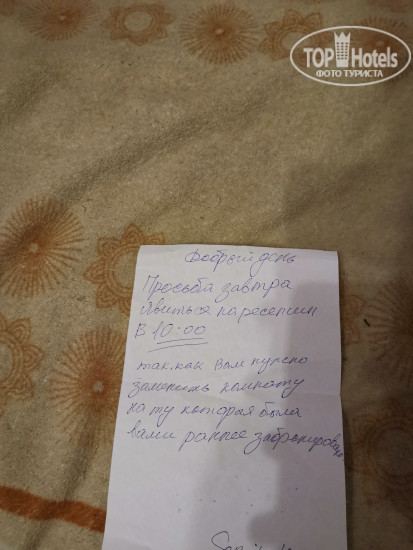 TOP Hotels
ФОТО ТУРИСТА
Добрый день
Просьба завтра
явиться на ресепшн
В 10:00
так как Вам нужно
заменить комнату
на ту которая была
вами раннее забронирован